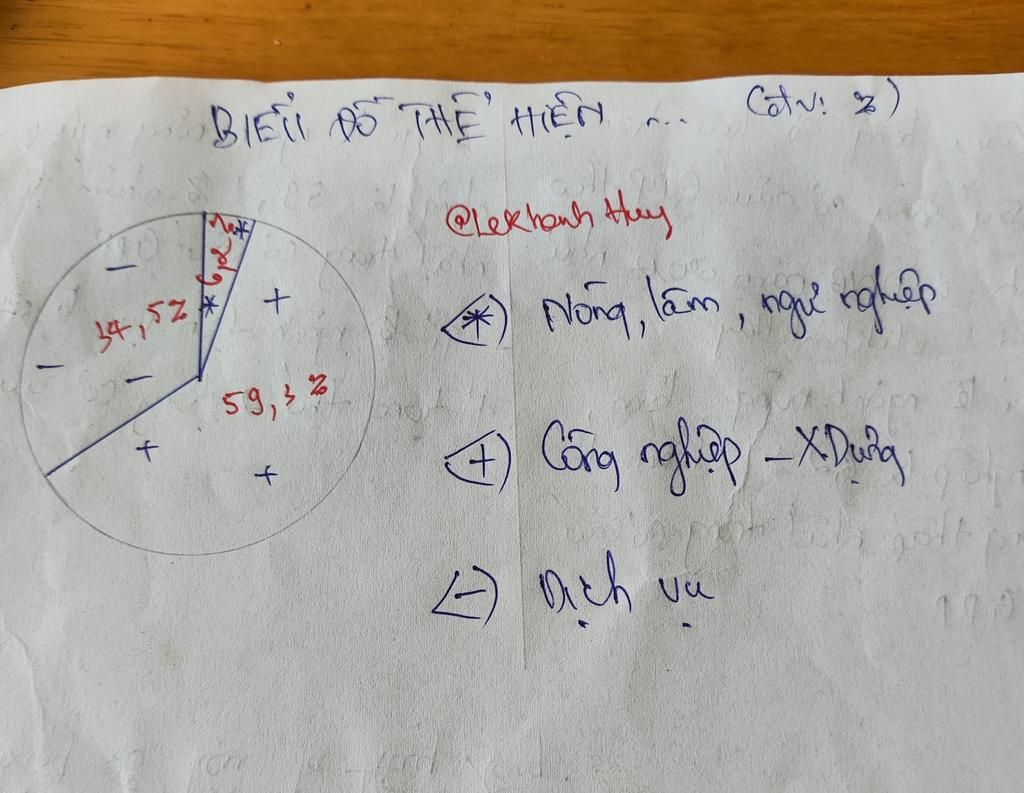 BIỂU ĐỒ THỂ HIỆN ... (đtv: %)
@LeKhanhHuy
6,2%
34,5%
59,3%
(*) Nông, lâm, ngư nghiệp
(+) Công nghiệp - XDựng
(-) Dịch vụ